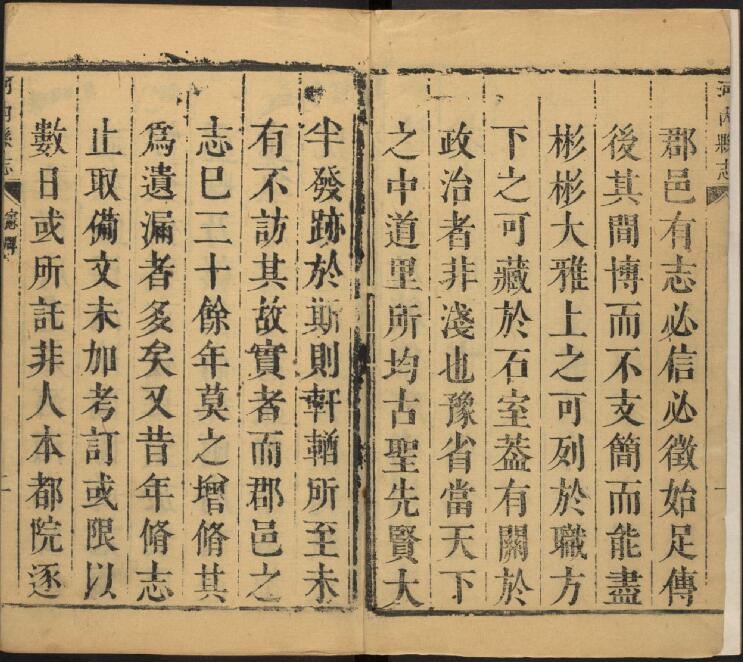 河內縣志
郡邑有志必信必徵始足傳
後其間博而不支簡而能盡
彬彬大雅上之可列於職方
下之可藏於石室葢有關於
政治者非淺也豫省當天下
之中道里所均古聖先賢大
半發跡於斯則軒輶所至未
有不訪其故實者而郡邑之
志巳三十餘年莫之增脩其
爲遺漏者多矣又昔年脩志
止取備文未加考訂或限以
數日或所託非人本都院逐
河內縣志